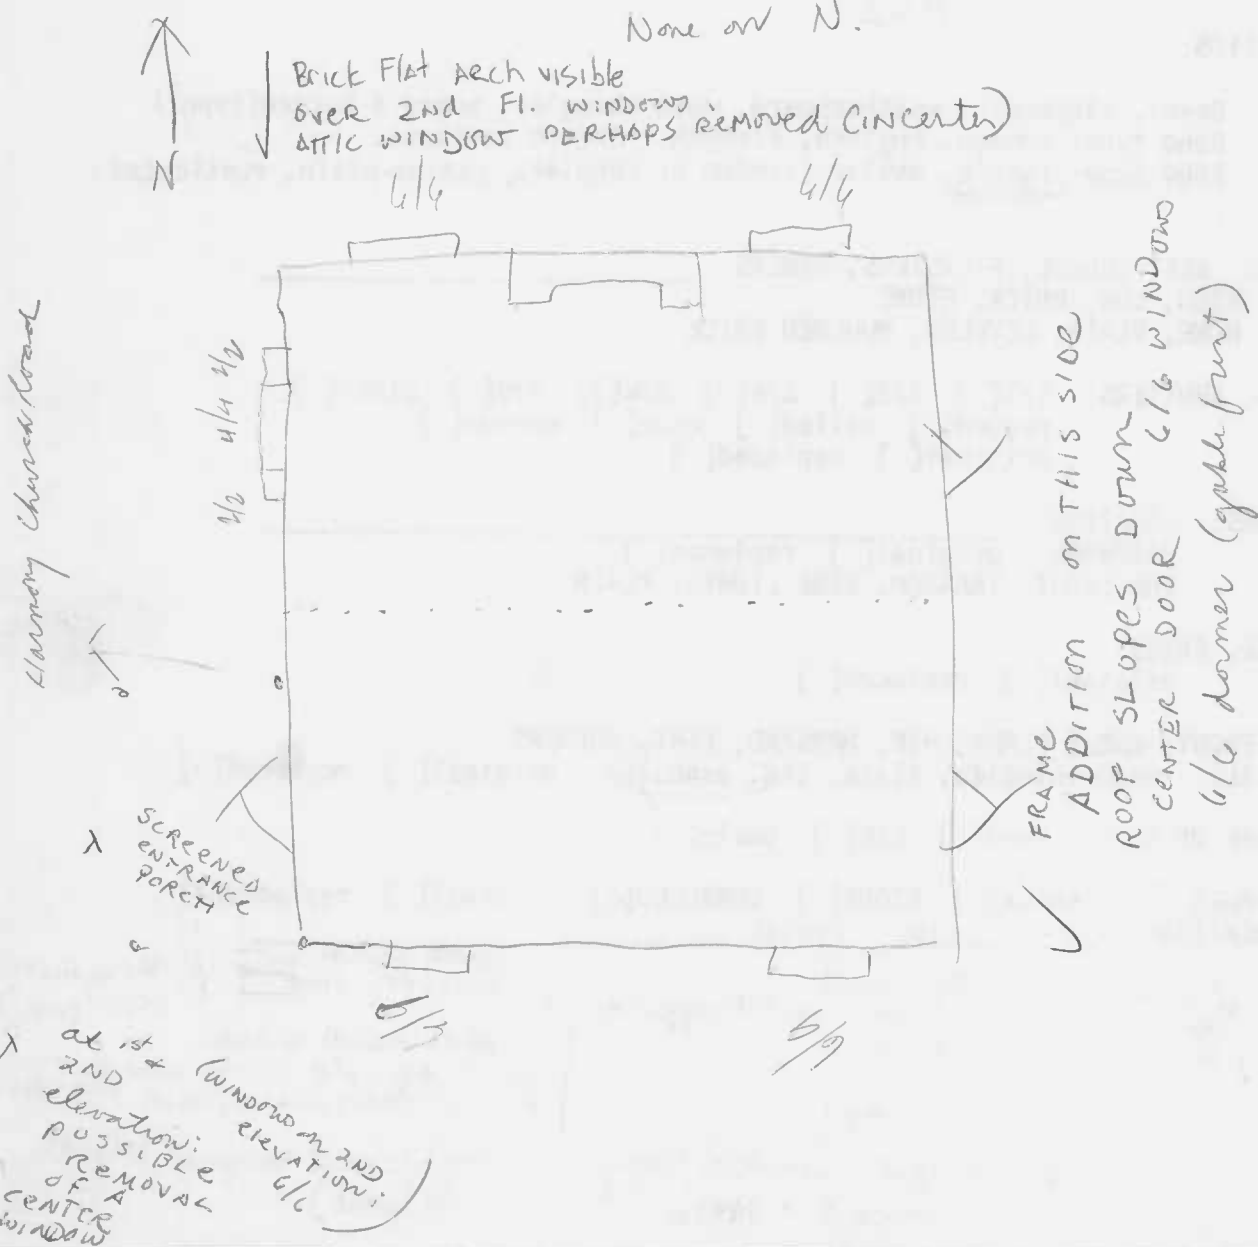 None on N.
Brick Flat Arch visible
over 2nd Fl. windows.
Attic window perhaps removed (in center)
N
4/4
4/4
Harmony Church Road
2/2
4/4
2/2
FRAME
ADDITION on THIS SIDE
ROOF SLOPES DOWN
CENTER DOOR 6/6 WINDOWS
6/6 dormer (gable front)
SCREENED
ENTRANCE
PORCH
6/9
at 1st &
2ND
elevation:
POSSIBLE
REMOVAL
OF A
CENTER
WINDOW
(WINDOWS on 2ND
elevation:
6/6